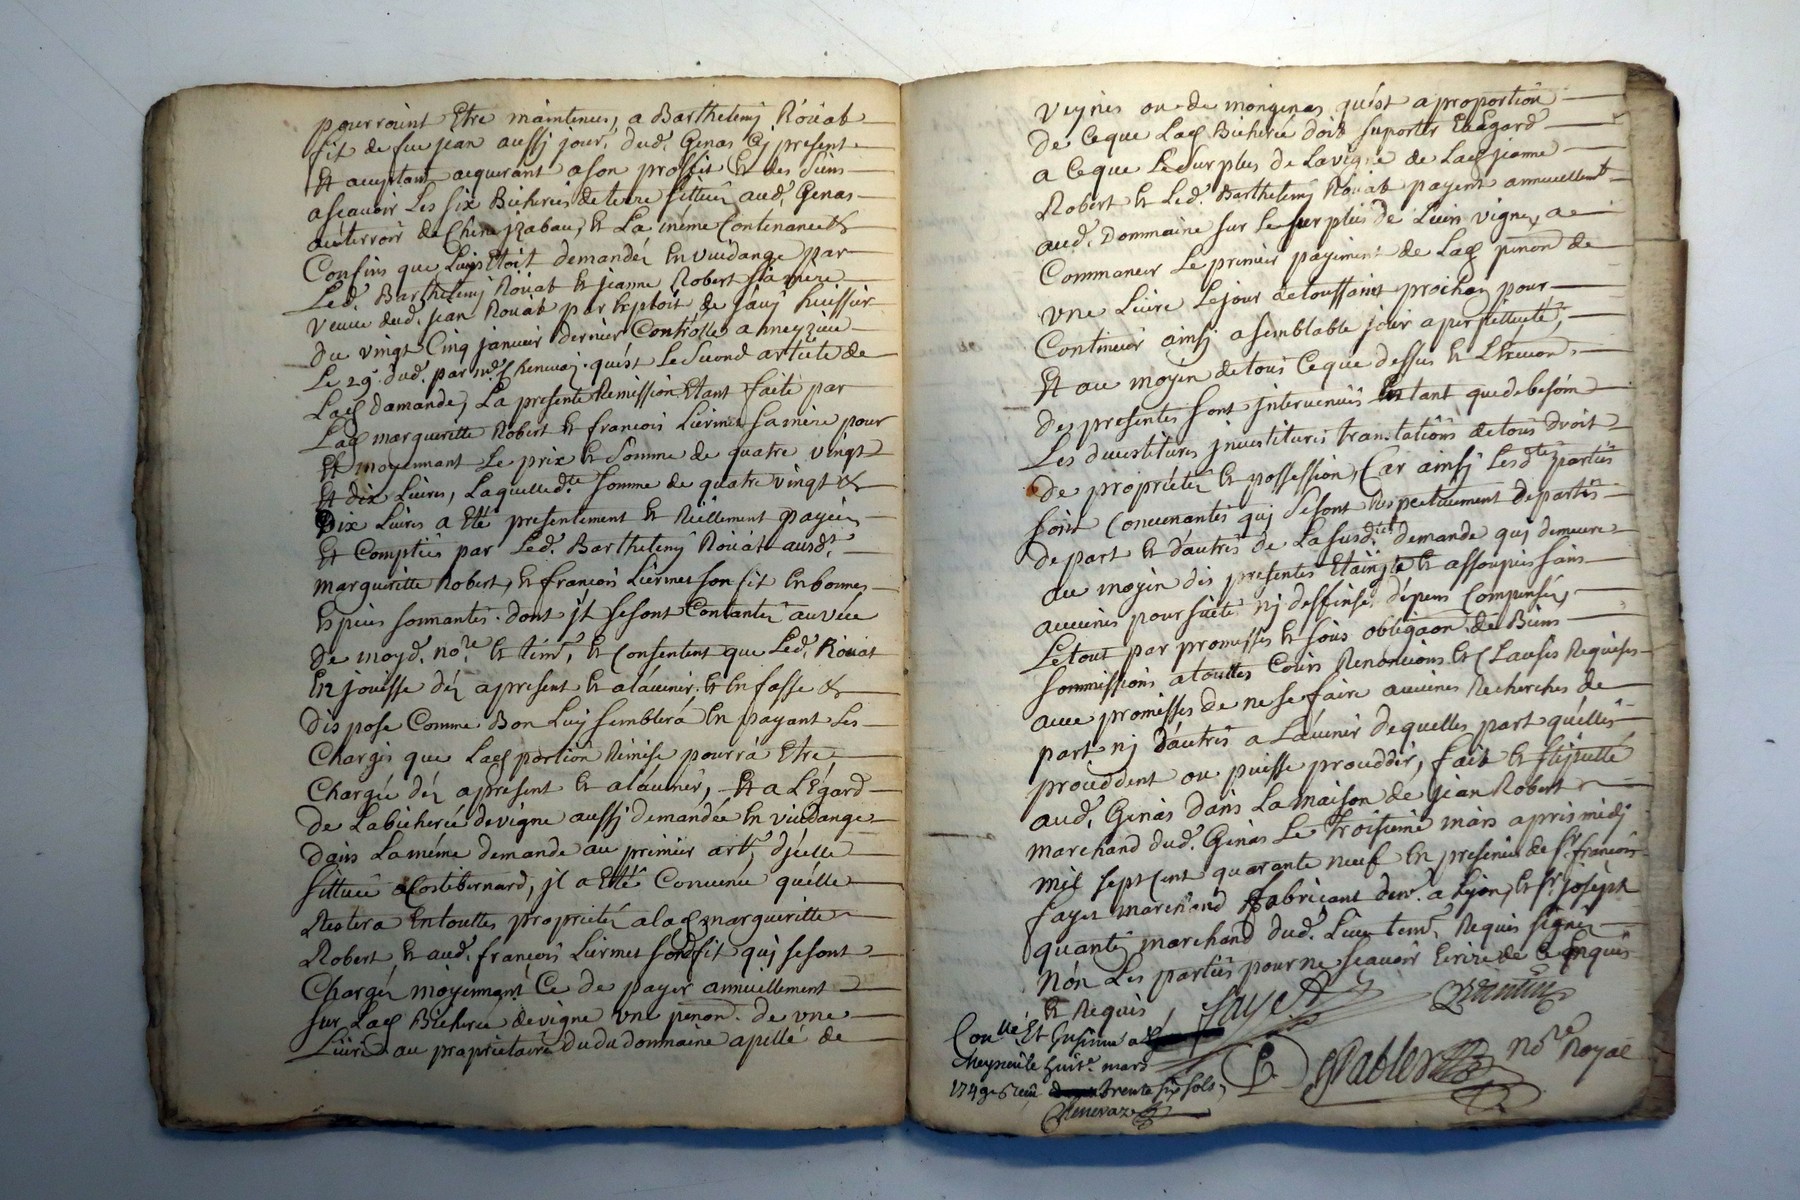 pourroint Etre maintenus, a Barthelemj Roüab
fit de fue jean aussj jour.r dud. Genas Cj present
Et aceptant aequerant a son proffit Et des siens
a scavoir Les six Bicherées de terre sittueé aud. Genas
au terroir de Chene jzabau, Et La meme Contenance &
Confins que Luy Etoit demandéz En vuidange par
Led. Barthelemj Roüab Et jeanne Robert sa mere
veuve dud. jean Roüab par Exploit de janj huissier
du vingt Cinq janvier dernier Controlle a meyzieu
Le 29.e dud. par mr. Chenevaz. quest Le second article de
Lad demande, La presente Remission Etant faite par
Lad margueritte Robert Et francois Liermet sa mere pour
Et moyennant Le prix Et somme de quatre vingt
Et dix Livres, Laquelled.te somme de quatre vingt &
Dix Livres a Eté presentement Et Réellement payeés
Et Comptées par Led. Barthelemj Roüab ausd.
margueritte Robert, Et francois Liermet son fit En bonnes
Espéces sonnantes. dont jl se sont Contantéz au veue
de moyd. no.re Et tem., Et Consentent que Led. Roüat
En joüisse déz apresent Et a lávenir. Et En fasse &
dispose Comme Bon Luy semblerá En payant Les
Charges que Lad portion Remise pourrá Etre
Chargée déz apresent Et a lávenir, Et a LÉgard
de La bicherée de vigne aussj demandée En vuidange
dans La méme demande au premier art. djcelle
sittueé a Costebernard, jl a Eté Convenu quélle
Restera En touttes proprietéz a lad margueritte
Robert Et aud. francois Liermet son fit quj se sont
Chargéz moyennant Ce de payer annuellement
sur Lad Bicherée de vigne vne penon. de vne
Livre au proprietaire du du dommaine apellé de
veyries ou de mongenas quést a proportion
de Ce que Lad Bicherée doit suporter Eu Egard
a Ce que Le surplus de La vigne de Lad jeanne
Robert Et Led. Barthelemj Roüab payent annuellemt
aud. Dommaine sur Le surplus de Leurs vignes, a
Commancer Le premier payement de Lad penon de
vne Livre Le jour de toussaint prochan pour
Continuer ainsj a semblable jour a perpettuité,
Et au moyen de tous Ce que dessus Et LEtenon.
des presentes sont jntervenües En tant que de besoin
Les devestitures jnvestitures translations de tous droit
de propriétéz Et possession, Car ainsj Lesdtes parties
sont Convenantes quj se sont Respectivement departis
de part Et dáutres de La susd.te demande quj demeure
au moyen des presentes Etainjte Et assoupies sans
aucunes poursuites nj deffinse. dépens Compensés,
Le tout par promesses Et sous obligaon. de Biens
sommissions a touttes Cours Renoncions Et Clauses Requises
avec promesses de ne se faire aucunes Recherches de
part nj dáutres a Lávenir de quelles part quélles
proceddent ou puisse procedder, fait Et stipullé
aud. Genas dans La maison de jean Robert
marchand dud. Genas Le troisieme mars apres midj
mil sept Cent quarante neuf En presence de sr. francois
fayet marchand fabricant dem. a Lyon, Et sr. joseph
quantin marchand dud. Lieu tem. Requis signéz
Nón Les parties pour ne scavoir Ecrire de Ce Enquis
Et Requis
fayet
Quantin
Pablet no.re Royal
Con.llé Et Insinué a
Meyzieu le huit.e mars
1749 reçu trente six sols,
Chenevaz